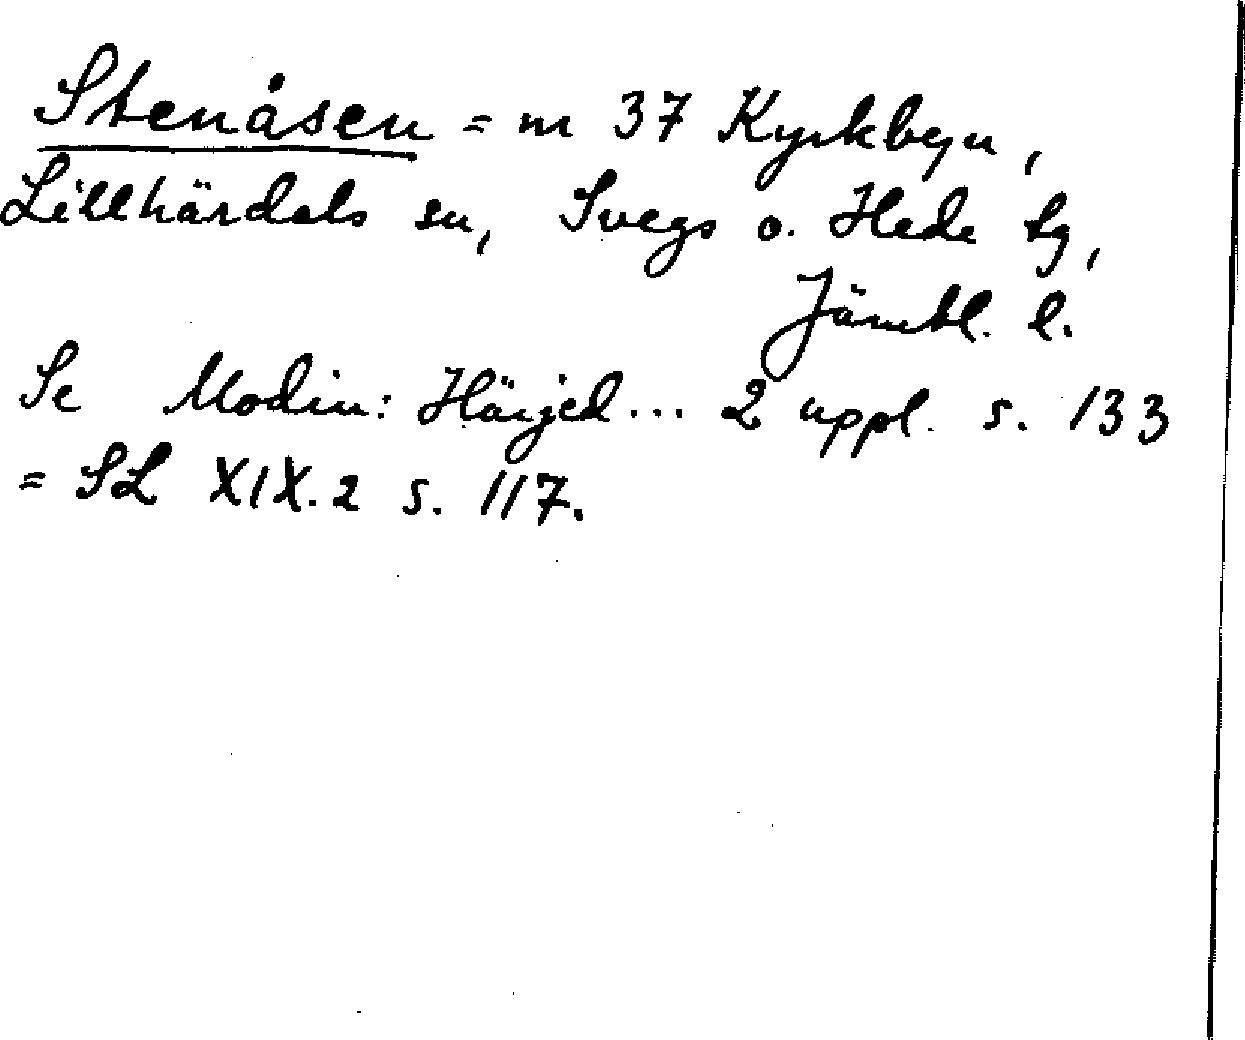 Stenåsen = m 37 Kyrkbyn,
Lillhärdals sn, Svegs o. Hede tg,
Jämtl. l.
Se Modin: Härjed... 2 uppl. s. 133
= SL XIX.2 s. 117.